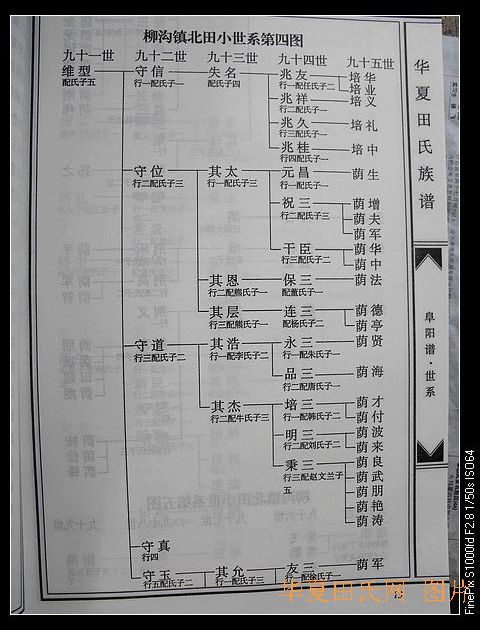 柳沟镇北田小世系第四图
九十一世 九十二世 九十三世 九十四世 九十五世
维型 守信 失名 兆友 培华
配氏子五 行一配氏子一 配氏子四 行一配任氏子二 培业
兆祥 培义
行二配氏子一
兆久 培礼
行三配氏子一
兆桂 培中
行四配氏子一
守位 其太 元昌 荫生
行二配氏子三 行一配氏子三 行一配氏子一
祝三 荫增
行二配氏子三 荫夫
荫军
干臣 荫华
行三配氏子二 荫中
其恩 保三 荫法
行二配熊氏子一 配董氏子一
其层 连三 荫德
行三配熊氏子一 配杨氏子二 荫亭
守道 其浩 永三 荫贤
行三配氏子二 行一配李氏子二 行一配朱氏子一
品三 荫海
行二配唐氏子一
其杰 培三 荫才
行二配牛氏子三 行一配韩氏子二 荫付
明三 荫波
行二配刘氏子二 荫来
秉三 荫良
行三配赵文兰子五 荫武
荫朋
荫艳
荫涛
守真
行四
守玉 其允 友三 荫军
行五配氏子二 行一配氏子三 行一配徐氏子一
华夏田氏族谱
阜阳谱·世系
华夏田氏网 图片
FinePix S1000fd F2.8 1/50s ISO64